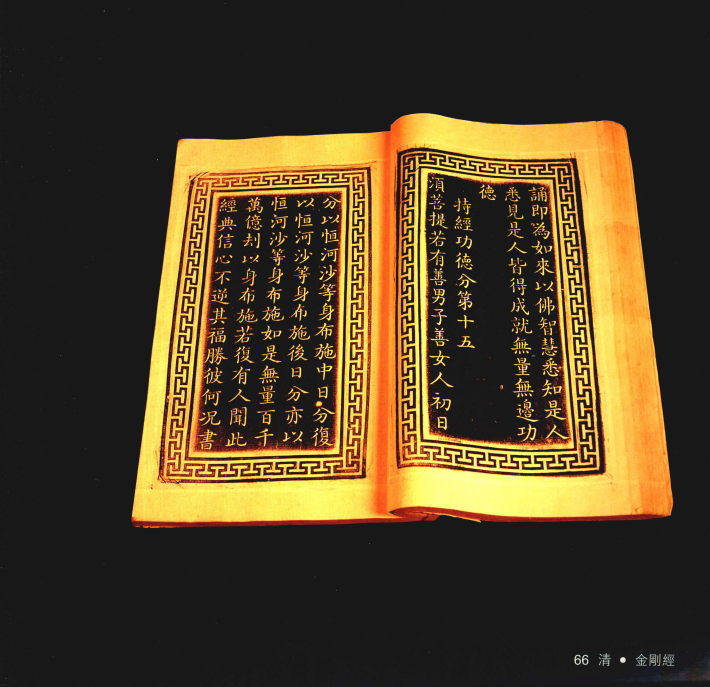 誦即為如來以佛智慧悉知是人
悉見是人皆得成就無量無邊功
德
持經功德分第十五
湏菩提若有善男子善女人初日
分以恒河沙等身布施中日分復
以恒河沙等身布施後日分亦以
恒河沙等身布施如是無量百千
萬億刦以身布施若復有人聞此
經典信心不逆其福勝彼何况書
66 清 • 金剛經